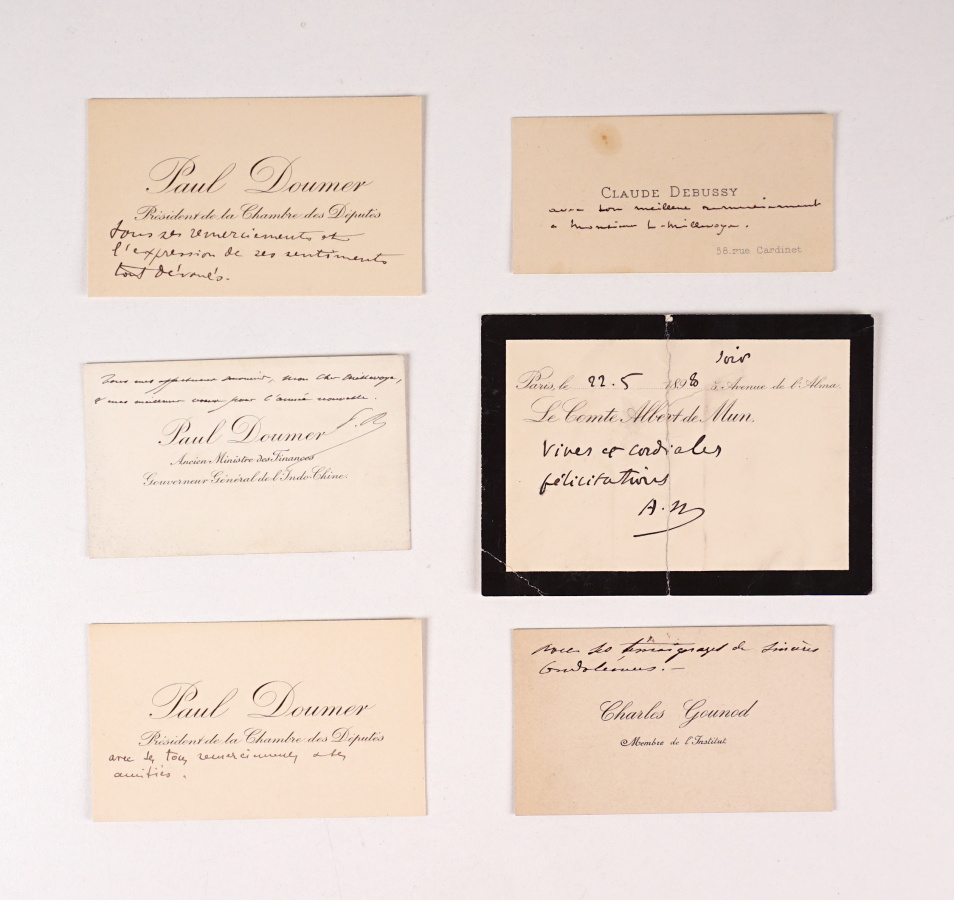 Paul Doumer
Président de la Chambre des Députés
tous ses remerciements et
l'expression de ses sentiments
tout dévoués.
CLAUDE DEBUSSY
avec son meilleur remerciement
a Monsieur L. Millevoye.
58, rue Cardinet
Tous mes affectueux souvenirs, mon cher Millevoye,
& mes meilleurs vœux pour l'année nouvelle.
Paul Doumer
Ancien Ministre des Finances
Gouverneur Général de l'Indo-Chine
soir
Paris, le 22.5 1898 5, Avenue de l'Alma.
Le Comte Albert de Mun.
Vives et cordiales
félicitations
A. M
Paul Doumer
Président de la Chambre des Députés
avec ses tous remerciements & ses
amitiés.
avec les témoignages de sincères
Condoléances.-
Charles Gounod
Membre de l'Institut.